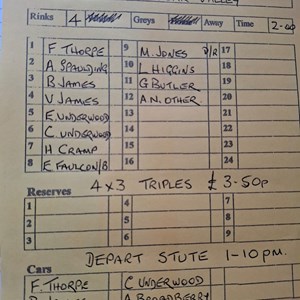 VALLEY
Rinks 4 Greys Away Time 2-00
1 F THORPE 9 M. JONES P/R 17
2 A SPAULDING 10 L HIGGINS 18
3 B JAMES 11 G BUTLER 19
4 V JAMES 12 A N. OTHER. 20
5 E. UNDERWOOD 13 21
6 C. UNDERWOOD 14 22
7 H CRAMP 15 23
8 E FAULCON/B 16 24
Reserves 4 x 3 TRIPLES £3-50p
1 4 7
2 5 8
3 6 9
DEPART STUTE 1-10 PM.
Cars
F. THORPE C UNDERWOOD
JAMES A BROADBERRY